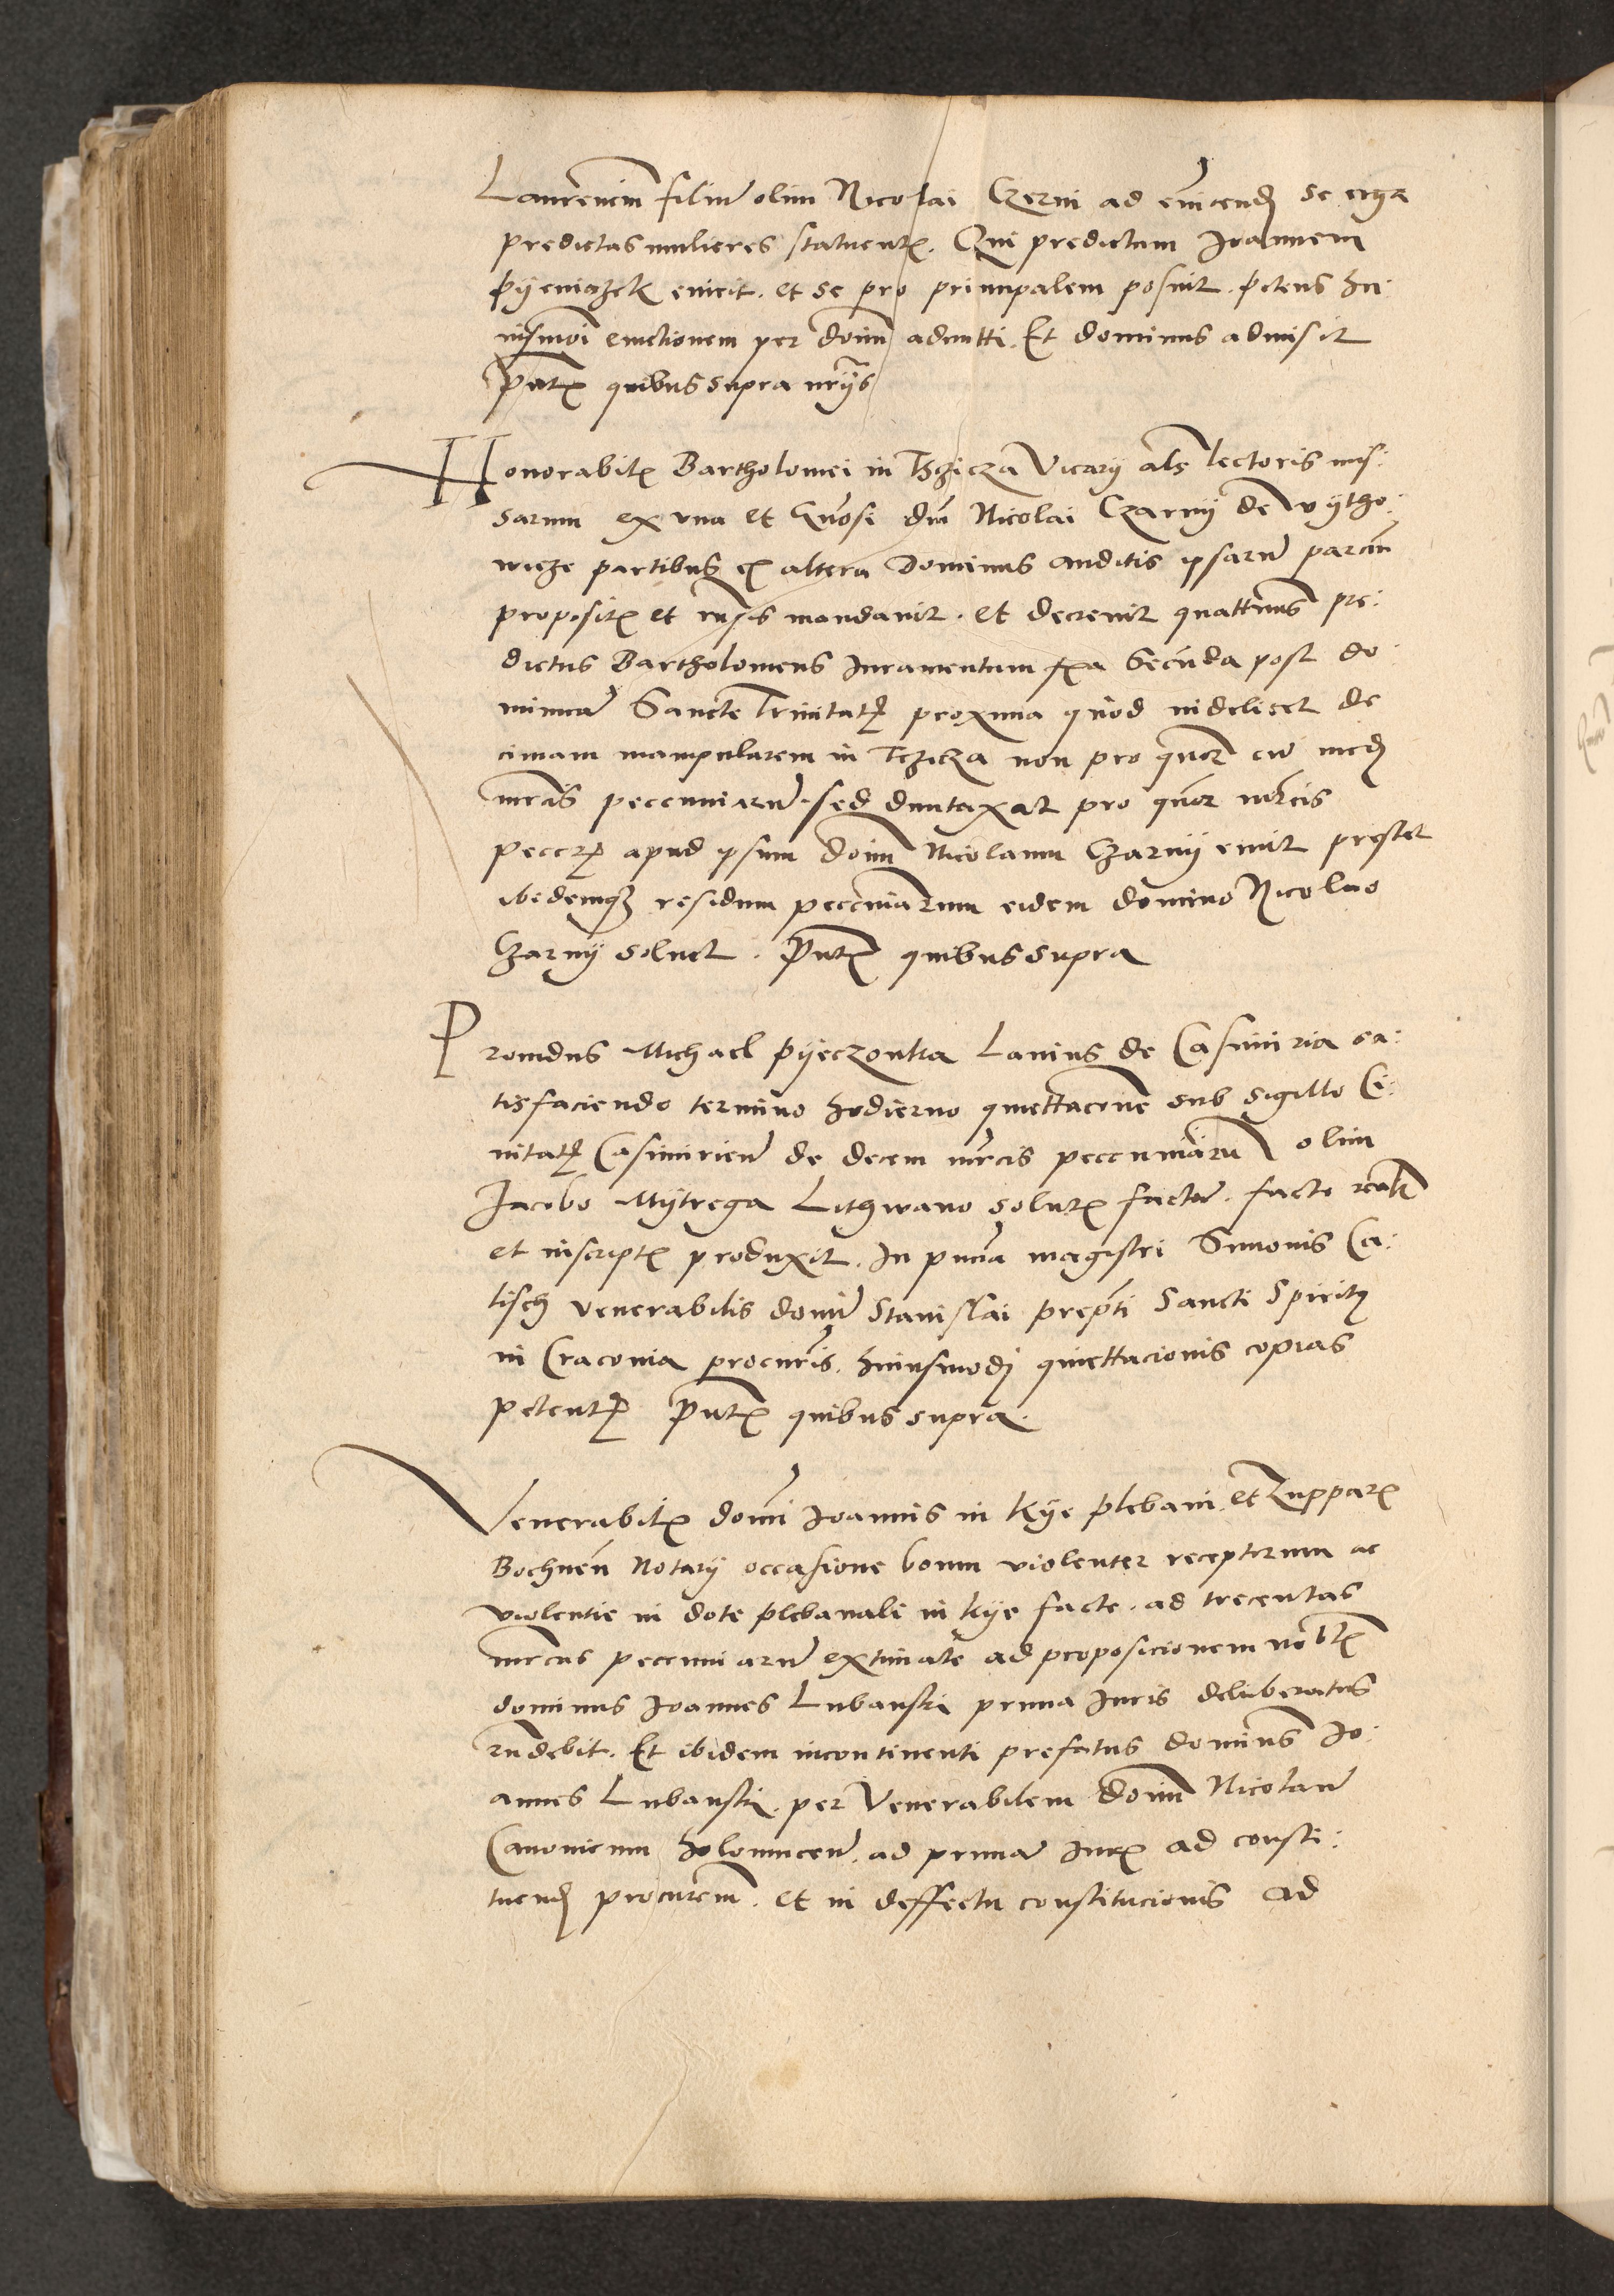 Laurencium filiū olim Nicolai Czerni ad evīcend se erga
predictas mulieres statuentē. Qui predictum Joannem
pyeniązek evicit. et se pro principalem posuit. petens hu:
iusmōi evictionem per dōim admitti. Et dominus admisit
Pntē quibus supra
Honorabilē Bartholomei in Tczicza Vicarÿ als lectoris mis:
sarum ex una et Gnōsi dni Nicolai Czarnÿ de vÿtho:
wicze partibus ex altera Dominus auditis ipsarū parciū
propositē et rnsis mandavit. et decrevit quattenus pre:
dictus Bartholomeus Juramentum fēa Secūda post do
minicā Sancte Trinitatē proxima quod videlicet de
cimam manipularem in Tczicza non pro qnor cū medē
mrcis peccuniarū. sed duntaxat pro qnor mrcis
peccē apud ipsum dōim Nicolaum Czarnÿ emit prestet
ibidemq residuum peccuniarum eidem domino Nicolao
Czarnÿ soluet. Pntē quibus supra
Providus Michael Pÿeczonka Lanius de Casimiria sa:
tisfaciendo termino hodierno quiettacionē sub sigillo Ci:
vitatē Casimirienē de decem mrcis peccuniarū olim
Jacobo Mÿtrega Lithwano solutē factā. facto realē
et inscriptē produxit. In pncia magistri Simonis Ca:
lisch venerabilis domī Stanislai prepti Sancti Spiritē
in Craconia procuris. huiusmodi quiettacionis copias
petentē Pntē quibus supra.
Venerabilē domī Joannis in Kÿe plebani. et Zupparē
Bochnēn Notarÿ occasione bonm violenter receptorum ac
violentie in dote plebanali in Kÿe facte. ad trecentas
mrcas peccuniarū extimate ad proposicionem nobilē
dominus Joannes Lubanski prima Juris deliberatus
rndebit. Et ibidem incontinenti prefatus dominus Jo:
annes Lubanski. per Venerabilem dōim Nicolaū
Canonicum holomucenē. ad primā Jurē ad consti:
tuendē procurēm. et in deffectu constitucionis ad